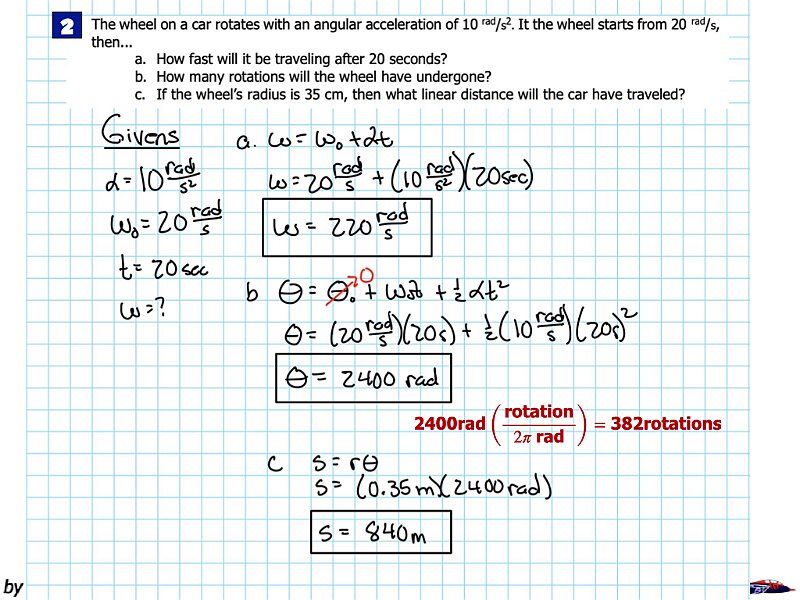 2 The wheel on a car rotates with an angular acceleration of 10 rad/s². It the wheel starts from 20 rad/s,
then...
a. How fast will it be traveling after 20 seconds?
b. How many rotations will the wheel have undergone?
c. If the wheel's radius is 35 cm, then what linear distance will the car have traveled?
Givens
α = 10 rad/s²
ω₀ = 20 rad/s
t = 20 sec
ω = ?
a. ω = ω₀ + αt
ω = 20 rad/s + (10 rad/s²)(20 sec)
ω = 220 rad/s
b θ = θ₀ + ω₀t + ½ αt²
0
θ = (20 rad/s)(20s) + ½(10 rad/s)(20s)²
θ = 2400 rad
2400rad (rotation / 2π rad) = 382rotations
c s = rθ
s = (0.35 m)(2400 rad)
s = 840 m
by